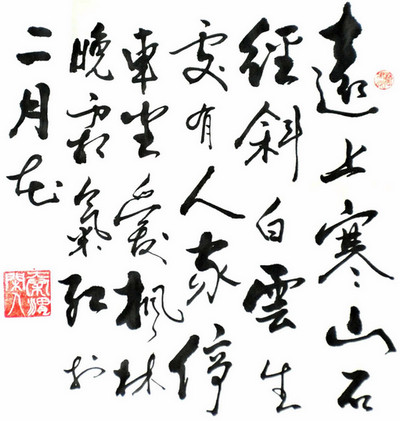 遠上寒山石
經斜白雲生
處有人家停
車坐愛楓林
晚霜葉紅於
二月花